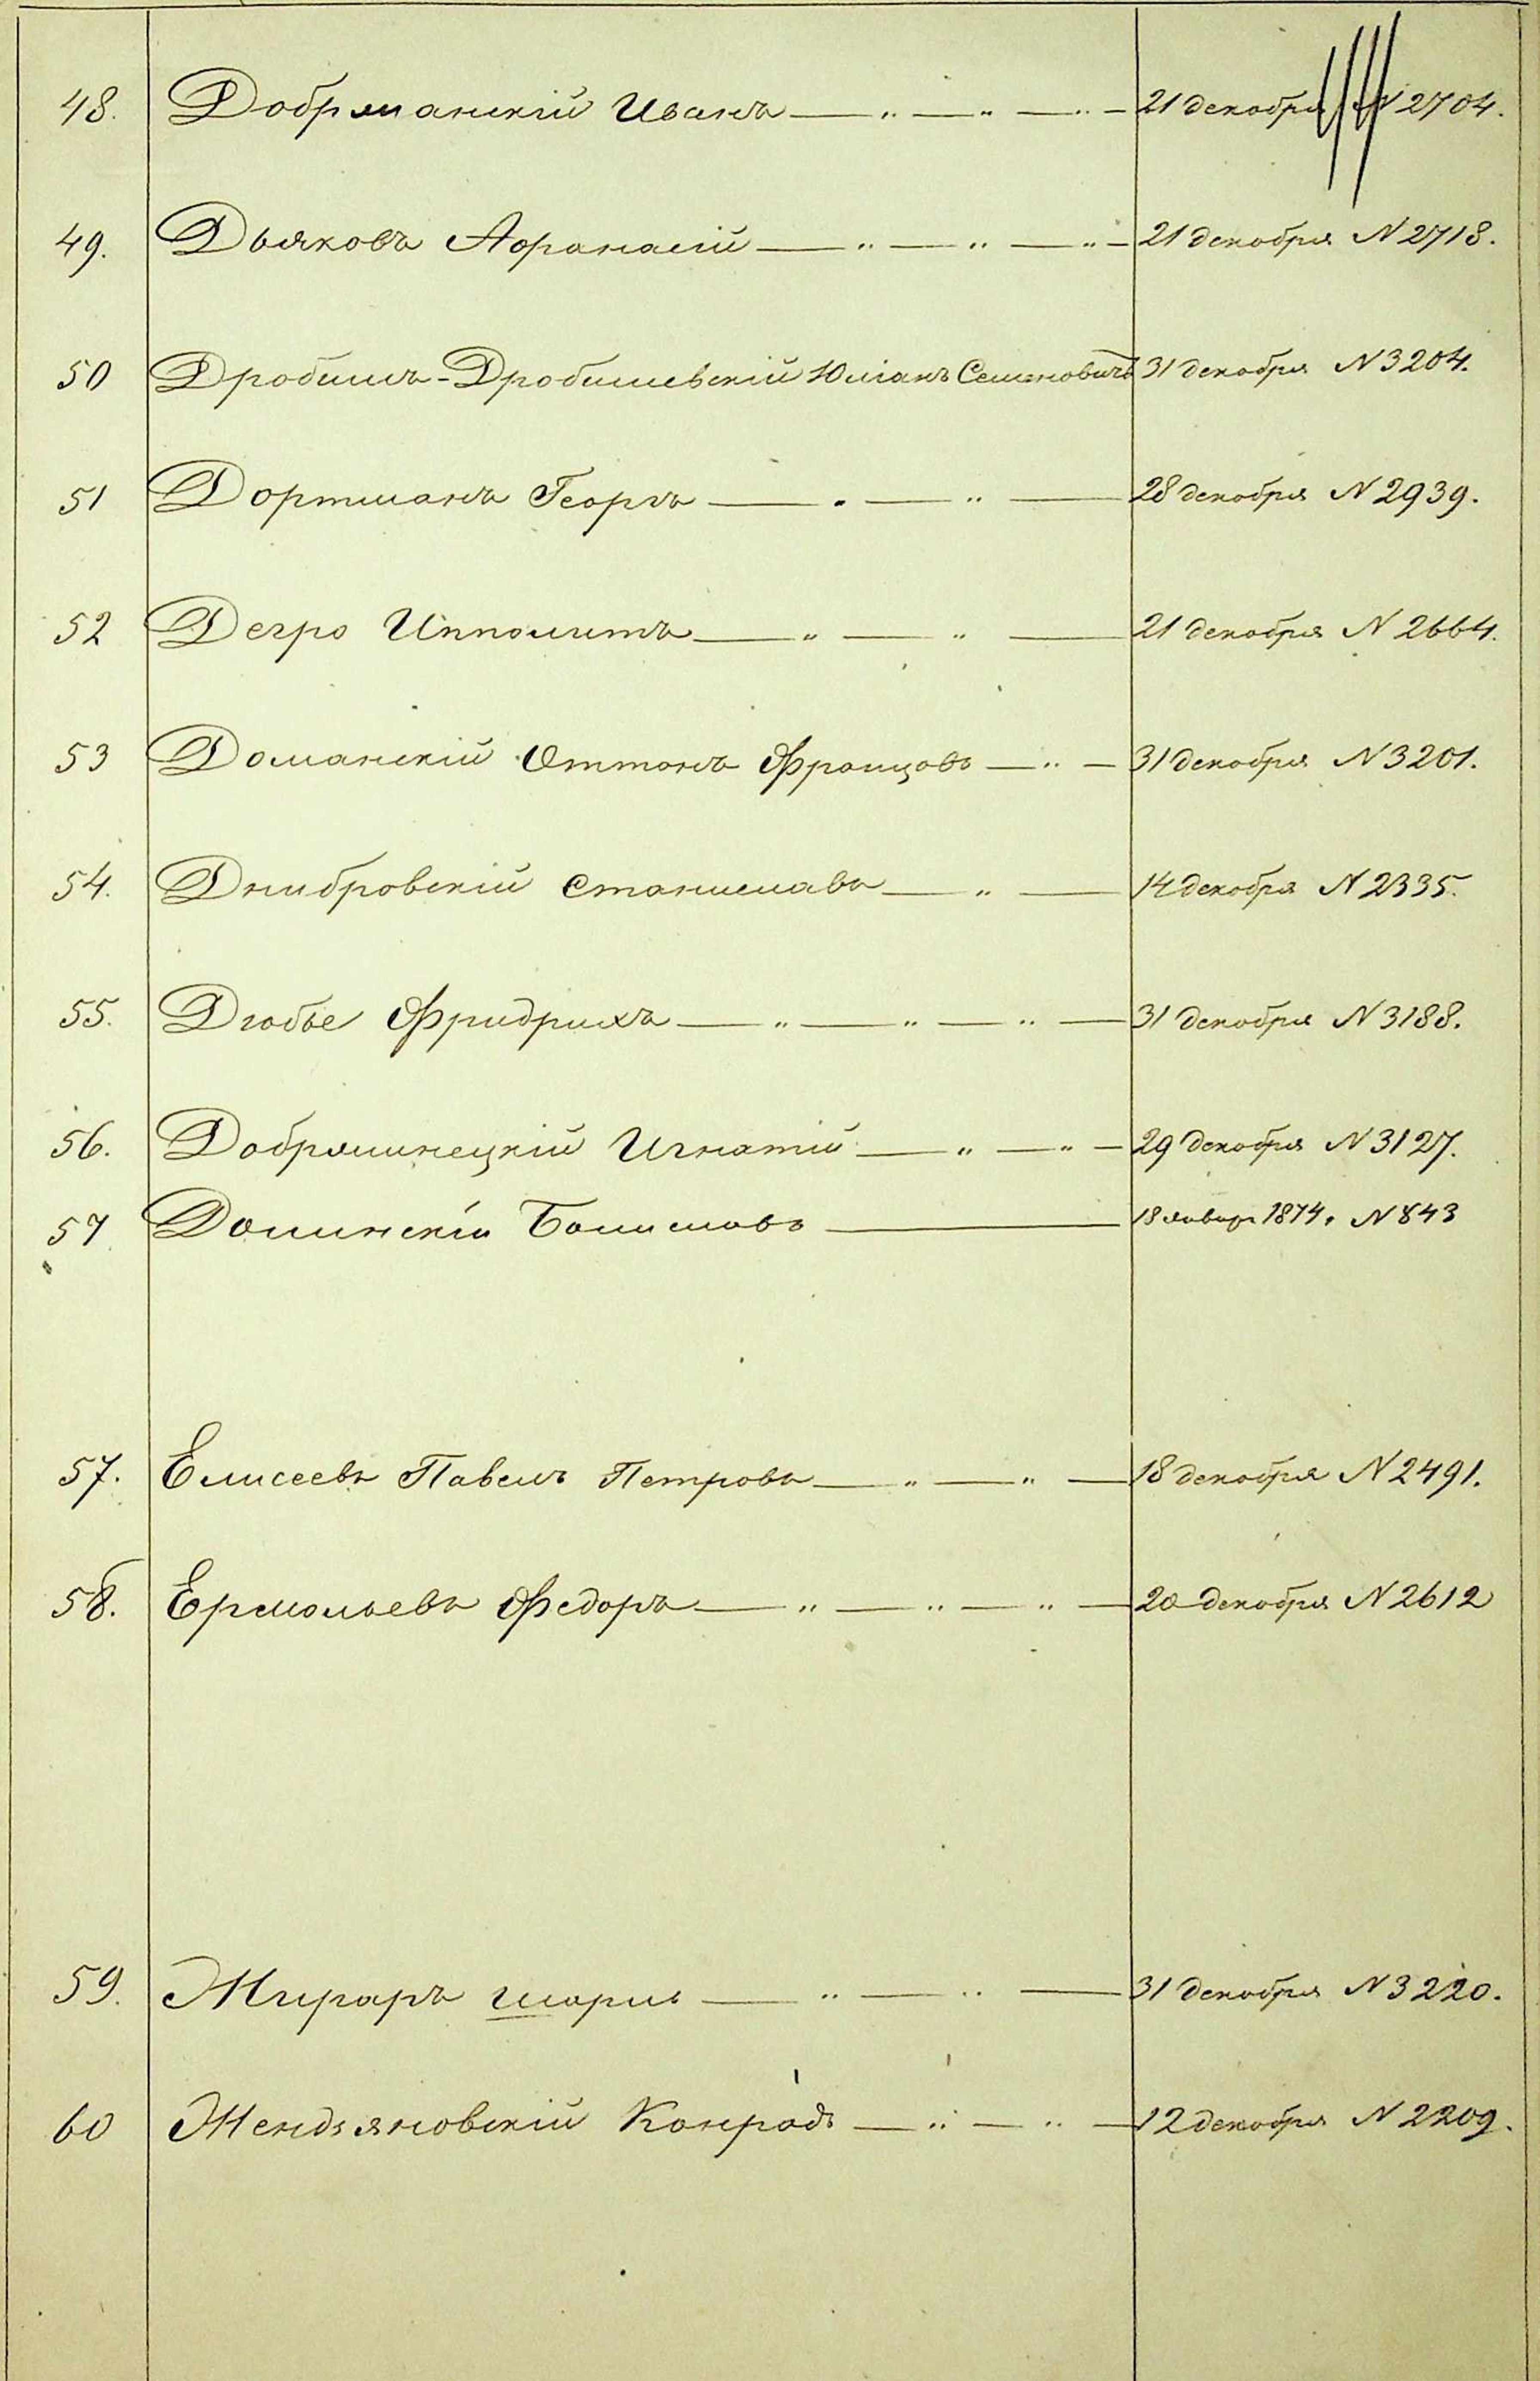 48. Добрянскій Иванъ — „ — „ — „ — 21 декабря N 2704.
49. Дьяковъ Афанасій — „ — „ — „ — 21 декабря N 2718.
50 Дробишъ-Дробишевскій Юліанъ Семеновичъ 31 декабря N 3204.
51 Дортманъ Георгъ — „ — „ — 28 декабря N 2939.
52 Дегро Ипполитъ — „ — „ — 21 декабря N 2664.
53 Доманскій Оттонъ Францовъ — „ — 31 декабря N 3201.
54. Домбровскій Станиславъ — „ — 14 декабря N 2335.
55. Дюбье Фридрихъ — „ — „ — „ — 31 декабря N 3188.
56. Игнатій — „ — „ — 29 декабря N 3127.
57 Долинскій Болиславъ — 18 январ 1874. N 843
57. Елисеевъ Павелъ Петровъ — „ — „ — 18 декабря N 2491.
58. Ермольевъ Федоръ — „ — „ — „ — 20 декабря N 2612
59. Жираръ Шарль — „ — „ — 31 декабря N 3220.
60 Жендзяновскій Конрадъ — „ — „ — 12 декабря N 2209.